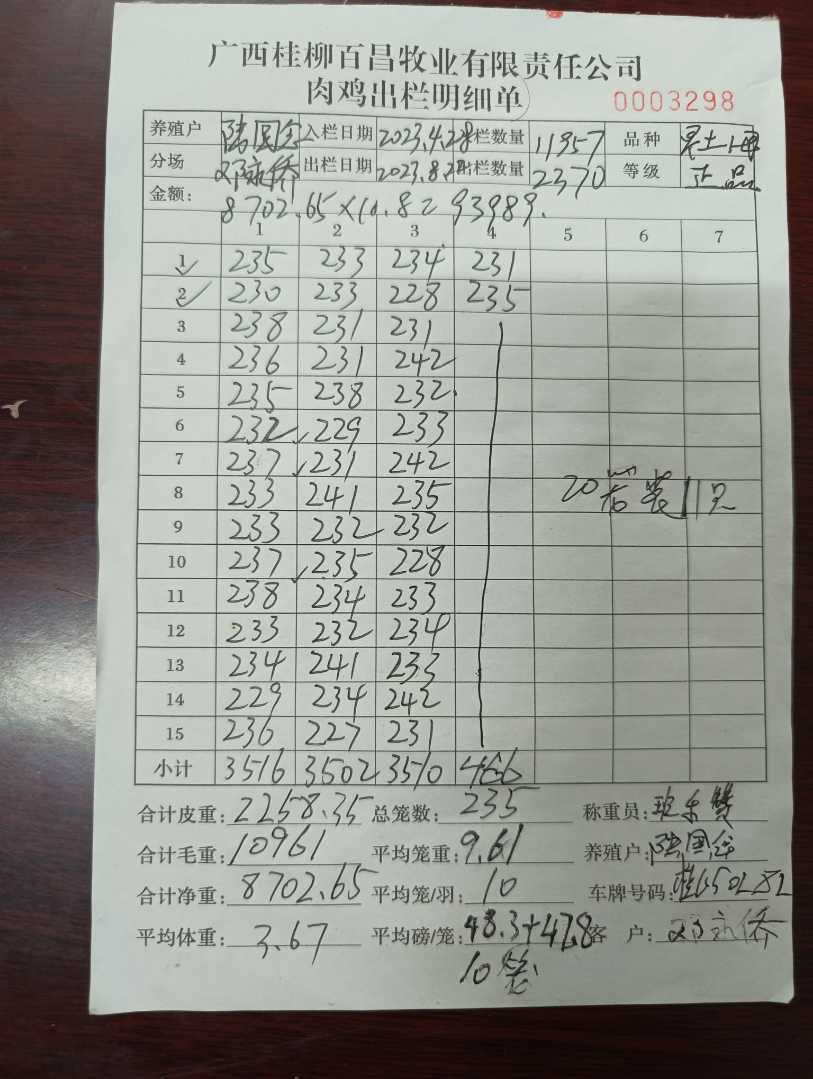 广西桂柳百昌牧业有限责任公司
肉鸡出栏明细单 0003298
养殖户 陆国 入栏日期 2023.4.28 栏数量 11957 品种 黑土
分场 邓 侨 出栏日期 2023.8. 出栏数量 2370 等级 正品
金额: 8702.65×10.8=93989.
1 2 3 4 5 6 7
1 235 233 234 231
2 230 233 228 235
3 238 231 231
4 236 231 242
5 235 238 232
6 232 229 233
7 237 231 242
8 233 241 235 20 装11只
9 233 232 232
10 237 235 228
11 238 234 233
12 233 232 234
13 234 241 233
14 229 234 242
15 236 227 231
小计 3516 3502 3510 466
合计皮重: 2258.35 总笼数: 235 称重员:
合计毛重: 10961 平均笼重: 9.61 养殖户: 陆国
合计净重: 8702.65 平均笼/羽: 10 车牌号码:
平均体重: 3.67 平均磅/笼: 48.3+47.8 客 户: 邓 侨
10笼